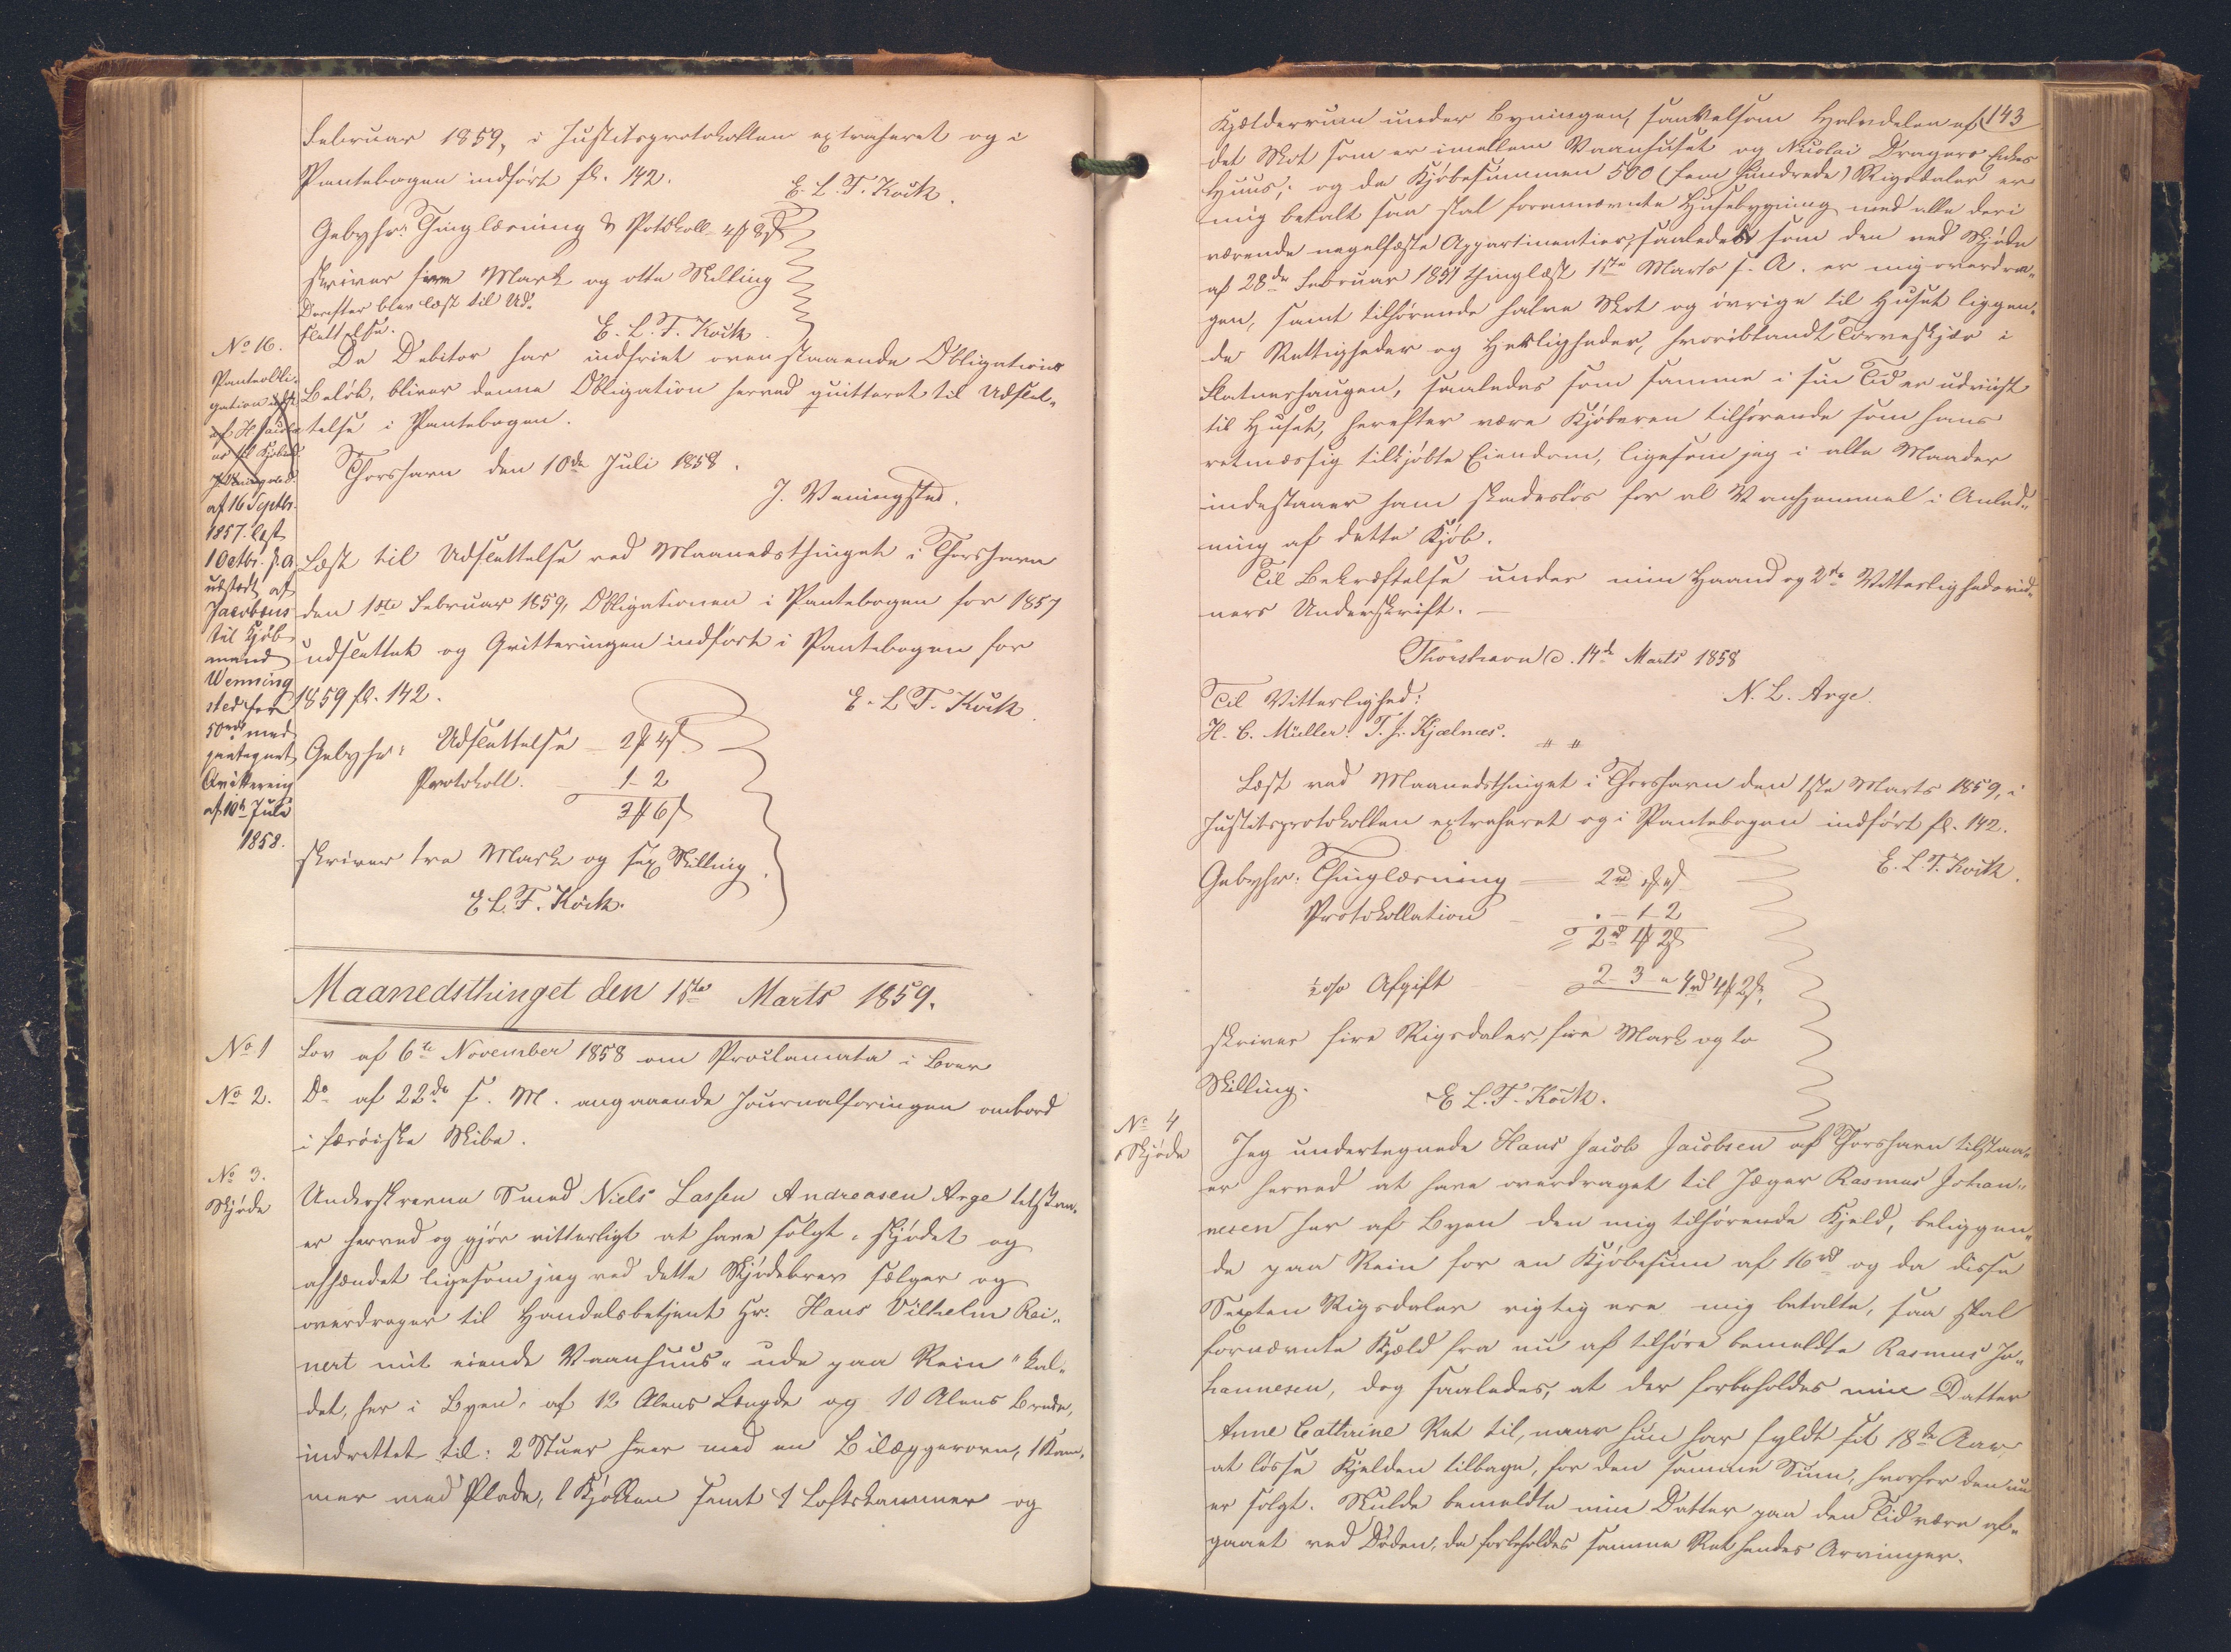 Februar 1859, i Justitsprotokollen extraheret og i
Pantebogen indført fl. 142.
E. L. T. Kock.
Gebyhr: Thinglæsning & Protokoll 4 ß 8 ß
skriver fire Mark og otte Skilling
Derefter blev læst til Ud-
slettelse.
E. L. T. Kock
No 16.
Panteobli-
gation
af 16 Septbr.
1857. læst
1 Octbr. s. A.
udstedt af
Jacobsens
til Kjøb-
mand
Wenning-
sted for
50 rd med
paategnet
Qvittering
af 10de Juli
1858.
Da Debitor har indfriet ovenstaaende Obligations
Beløb, bliver denne Obligation herved quitteret til Udslet-
telse i Pantebogen.
Thorshavn den 10de Juli 1858.
J. Weningsted.
Læst til Udslettelse ved Maanedsthinget i Thorshavn
den 1ste Februar 1859, Obligationen i Pantebogen for 1857
udslettet og Qvitteringen indført i Pantebogen for
1859 fl. 142.
E. L. T. Kock.
Gebyhr: Udslettelse 2 ß 4 ß
Protokoll. 1 - 2
3 ß 6 ß
skriver tre Mark og sex Skilling.
E. L. T. Kock.
Maanedsthinget den 1ste Marts 1859.
No 1 Lov af 6te November 1858 om Proclamata i Boer
No 2. Do af 22de s. M. angaaende Journalføringen ombord
i færøiske Skibe.
No 3.
Skjøde
Underskrevne Smed Niels Lassen Andreasen Arge tilstaa-
er herved og gjør vitterligt at have solgt, skjødet og
afhændet ligesom jeg ved dette Skjødebrev sælger og
overdrager til Handelsbetjent Hr. Hans Vilhelm Rei-
nert mit eiende Vaanhuus "ude paa Rein" kal-
det, her i Byen, af 12 Alens Længde og 10 Alens Brede,
indrettet til: 2 Stuer hver med en Bilæggerovn, 1 Kam-
mer med Plade, 1 Kjøkken samt 1 Loftskammer og
143
Kjælderrum under Bygningen, saavelsom Halvdelen af
det Skot som er imellem Vaanhuset og Nicolai Dragers Enkes
Huus; og da Kjøbesummen 500 (fem hundrede) Rigsdaler er
mig betalt saa skal forannævnte Husebygning med alle deri
værende nagelfaste Appartinentier, saaledes som den ved Skjøde
af 28de Februar 1851 thinglæst 1ste Marts s. A. er mig overdra-
gen, samt tilhørende halve Skot og øvrige til Huset liggen-
de Rettigheder og Herligheder, hvoriblandt Tørveskjær i
Flatnershaugen, saaledes som samme i sin Tid er udviist
til Huset, herefter være Kjøberen tilhørende som hans
retmæssig tilkjøbte Eiendom, ligesom jeg i alle Maader
indestaaer ham skadesløs for al Vanhjemmel i Anled-
ning af dette Kjøb.
Til Bekræftelse under min Haand og 2de Vitterlighedsvid-
ners Underskrift.
Thorshavn d. 14de Marts 1858
N. L. Arge.
Til Vitterlighed:
H. C. Müller. T. J. Kjælnæs.
Læst ved Maanedsthinget i Thorshavn den 1ste Marts 1859, i
Justitsprotokollen extraheret og i Pantebogen indført fl. 142.
E. L. T. Kock.
Gebyhr: Thinglæsning 2 rd
Protokollation . - 1 - 2
2 rd 1 ß 2 ß
½ o/o Afgift 2 - 3 - " 4 rd 4 ß 2 ß,
skriver fire Rigsdaler, fire Mark og to
Skilling.
E. L. T. Kock.
No 4
Skjøde
Jeg undertegnede Hans Jacob Jacobsen af Thorshavn tilstaa-
er herved at have overdraget til Jæger Rasmus Johan-
nesen her af Byen den mig tilhørende Kjeld, beliggen-
de paa Rein for en Kjøbesum af 16 rd og da disse
Sexten Rigsdaler rigtig ere mig betalte, saa skal
fornævnte Kjeld fra nu af tilhøre bemeldte Rasmus Jo-
hannesen, dog saaledes, at der forbeholdes min Datter
Anne Cathrine Ret til, naar hun har fyldt sit 18de Aar,
at løsse Kjelden tilbage, for den samme Sum, hvorfor den nu
er solgt. Skulde bemeldte min Datter paa den Tid være af-
gaaet ved Døden, da forbeholdes samme Ret hendes Arvinger.